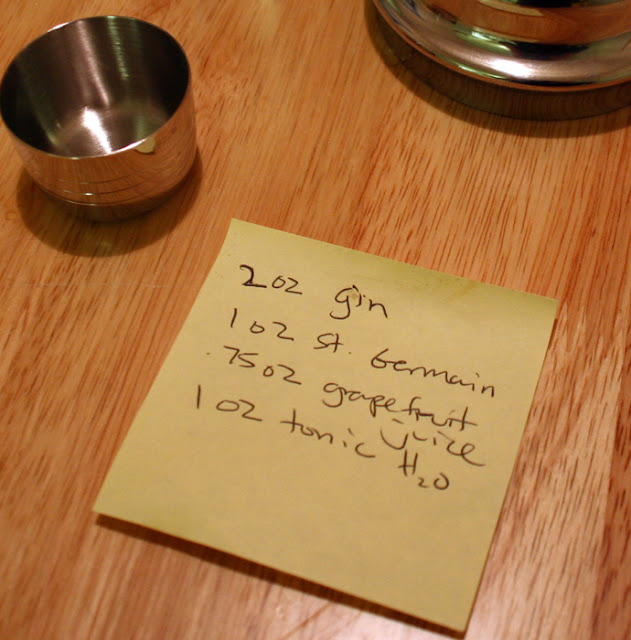 2oz gin
1 oz St. Germain
.75oz grapefruit
juice
1 oz tonic H₂O